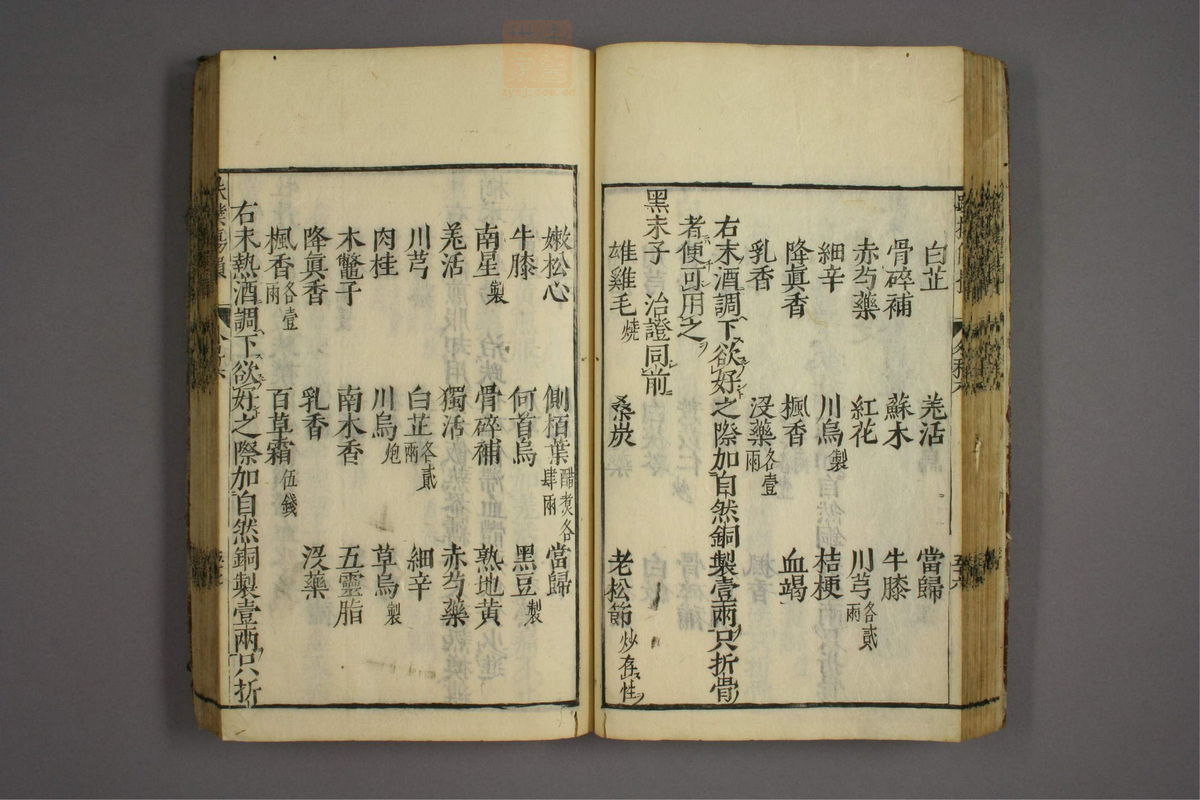 白芷　羌活　當歸
骨碎補　蘇木　牛膝
赤芍藥　紅花　川芎各貳兩
細辛　川烏製　桔梗
降眞香　楓香　血竭
乳香　没藥各壹兩
右末酒調下欲好之際加自然銅製壹兩只折骨
者便可用之
黑末子　治證同前
雄雞毛燒　桑炭　老松節炒存性
嫩松心　側栢葉醋煑各肆兩　當歸
牛膝　何首烏　黑豆製
南星製　骨碎補　熟地黃
羌活　獨活　赤芍藥
川芎　白芷各貳兩　細辛
肉桂　川烏炮　草烏製
木鱉子　南木香　五靈脂
降眞香　乳香　没藥
楓香各壹兩　百草霜伍錢
右末熱酒調下欲好之際加自然銅製壹兩只折